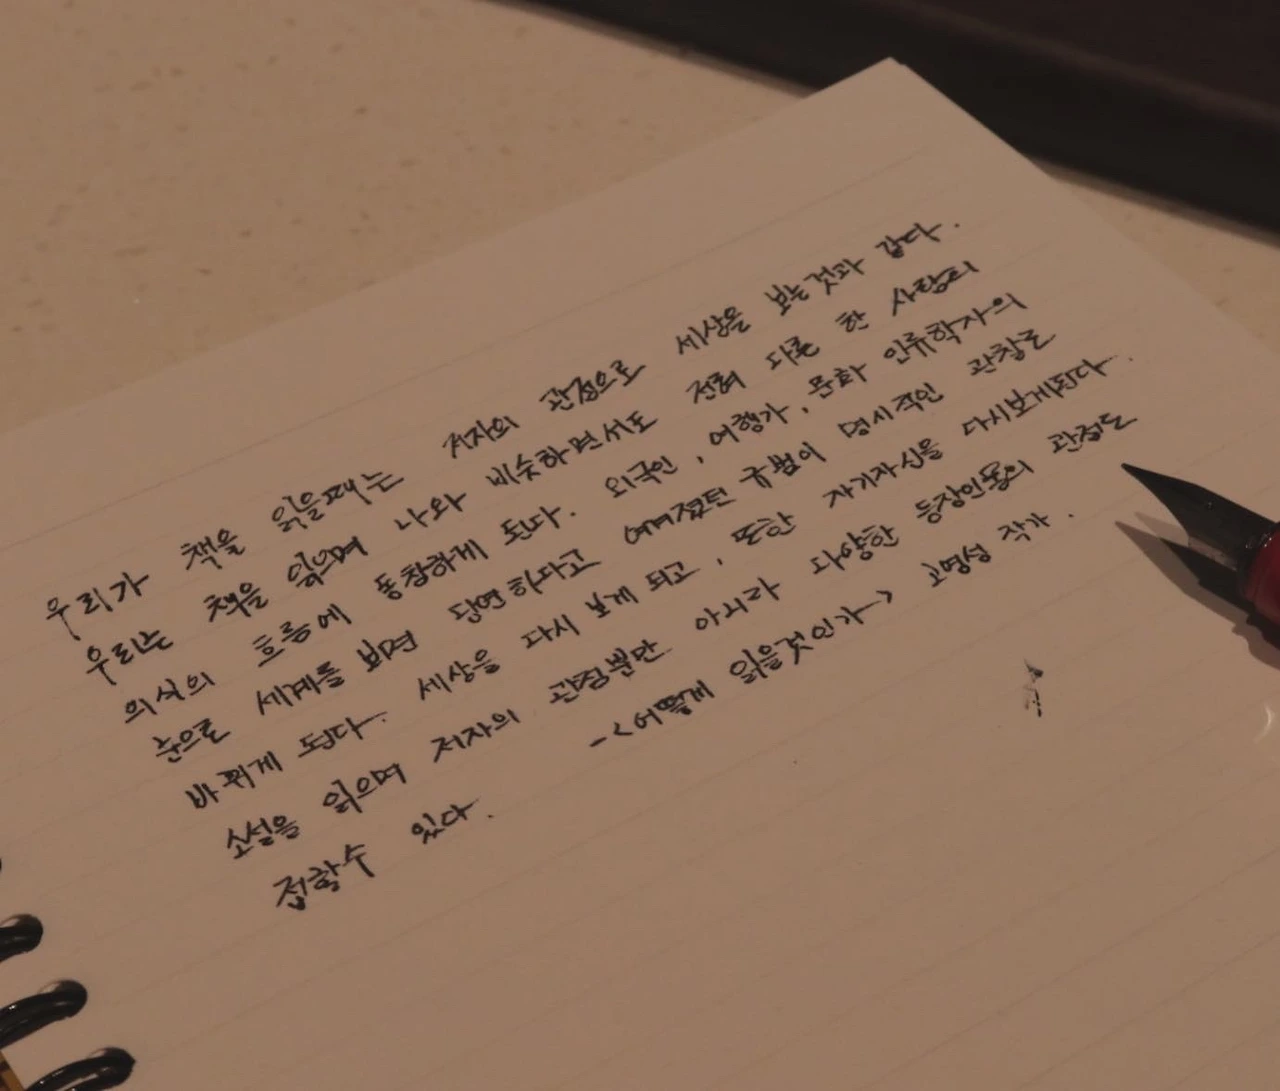 우리가 책을 읽을때는 저자의 관점으로 세상을 보는것과 같다.
우리는 책을 읽으며 나와 비슷하면서도 전혀 다른 한 사람의
의식의 흐름에 동참하게 된다. 외국인, 여행가, 문화 인류학자의
눈으로 세계를 보면 당연하다고 여겨졌던 규범이 명시적인 관찰로
바뀌게 된다. 세상을 다시 보게 되고, 또한 자기자신을 다시보게된다.
소설을 읽으며 저자의 관점뿐만 아니라 다양한 등장인물의 관점도
접할수 있다.
-<어떻게 읽을것인가> 고영성 작가.